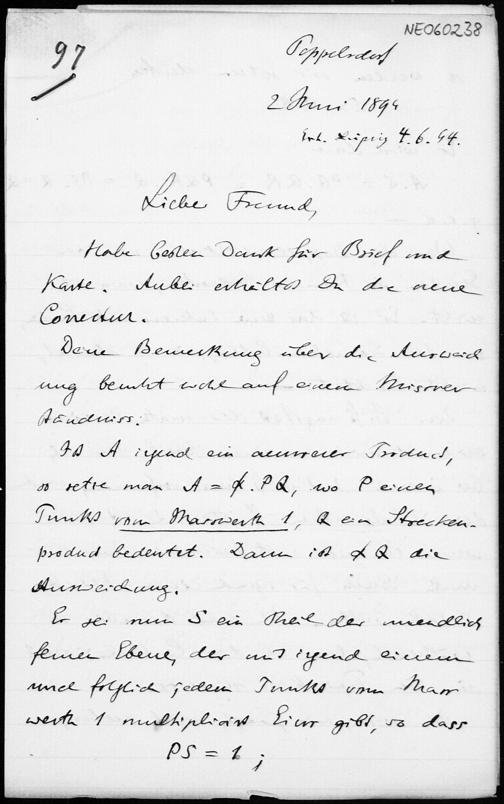 NE060238
97
Poppelsdorf
2 Juni 1894
Erh. Leipzig 4.6.94.
Lieber Freund,
Habe besten Dank für Brief und
Karte. Anbei erhältst Du die neue
Correctur.
Deine Bemerkung über die Ausweich
ung beruht wohl auf einem Missver
ständniss.
Ist A irgend ein äusseres Product,
so setze man A = . PQ, wo P einen
Punkt vom Masswerth 1, Q ein Strecken-
product bedeutet. Dann ist Q die
Ausweichung.
Es sei nun S ein Theil der unendlich
fernen Ebene, der mit irgend einem
und folglich jedem Punkt vom Mass
werth 1 multiplicirt Eins gibt, so dass
PS = 1 ;